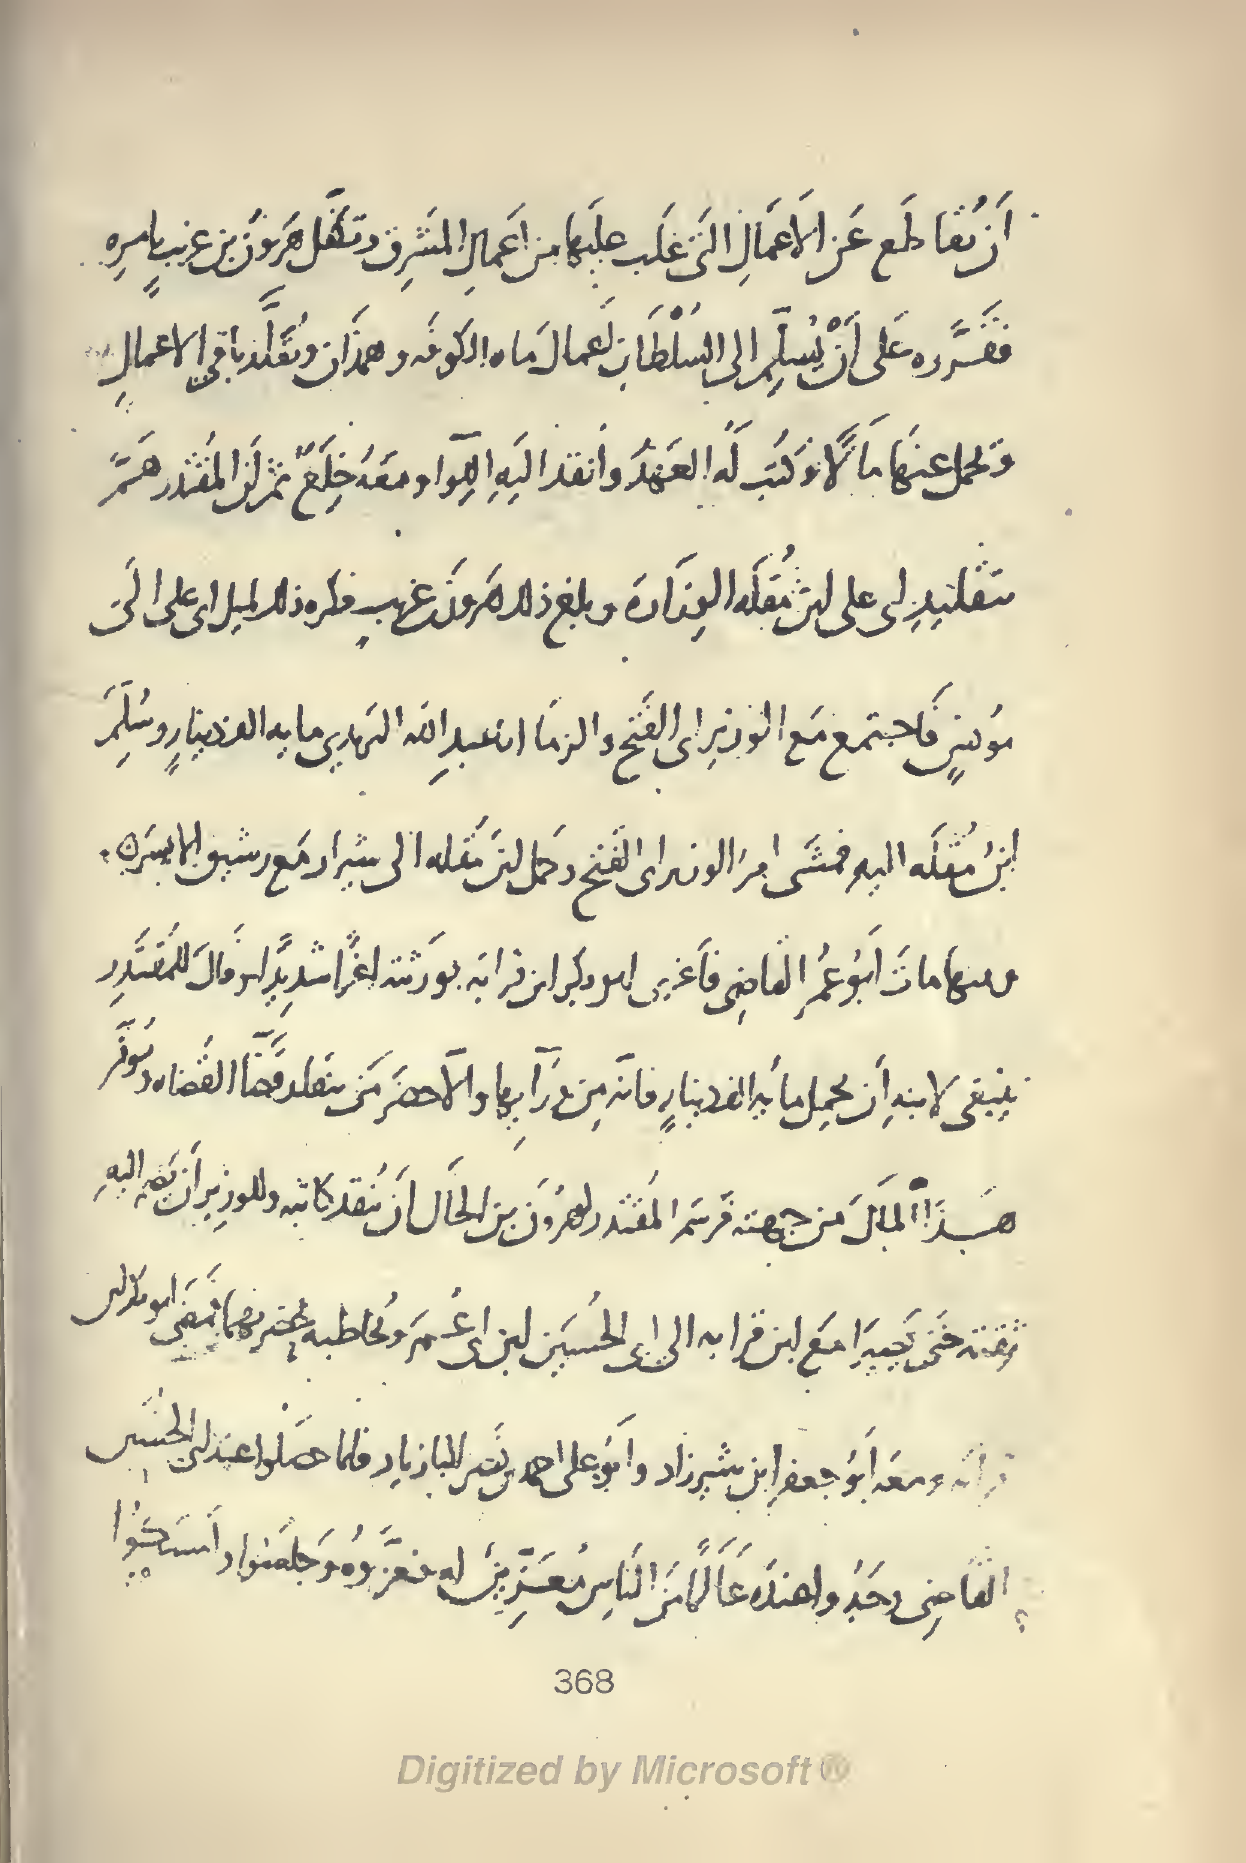 أن يقاطع عن الأعمال التى غلب عليها من أعمال المشرق وتكفل هرون بن غريب بامره
فقرره على أنْ يُسلّم الى السُلْطان أعمال ماه الكوفه وهمذان ويُقلّد باقى الاعمال
ويحمل عنها مالًا وكُتب له العهد وانفذ اليه اللوآ ومعه خِلَعٌ ثم ان المقتدر همّ
بتقليد ابى على ابن مُقله الوزارة وبلغ ذلك هرون بن غريب فكره ذلك لميل ابى على الى
مونس فاجتمع مع الوزير ابى الفتح والزما ابا عبد الله البريدى مايه الف دينار وسُلّم
ابنُ مُقله اليه فمشى امر الوزير ابى الفتح وحمل ابن مقله الى شيراز مع رشيق الايسر
وفيها مات أبُو عُمر القاضى فاغرى ابو بكر ابن قرابه بورثته اغرًا شديدًا وقال للمقتدر
ينبغى لابنه أن يحمل مائه الف دينار فانّه من ورآيها والا حضر من يتقلد قضا القضاه ويُوفّر
هذا المال من جهته فرسم المقتدر لهرون بن الخال أن يُنفذ كاتبه وللوزير أن يضم اليه
ثقته حتى يجيا مع ابن قرابه الى ابى الحُسين ابن ابى عُمر ويُخاطبه بحضرتهما فمضى ابو بكر ابن
قرابه ومعه أبو جعفر ابن شيرزاد وأبو على احمد بن نصر البازيار فلما حصلوا عند ابى الحسين
القاضى وحدوا عنده عالمًا من الناس مُعزّين له فعزّوه وجلسوا وأمسكُوا
368
Digitized by Microsoft®